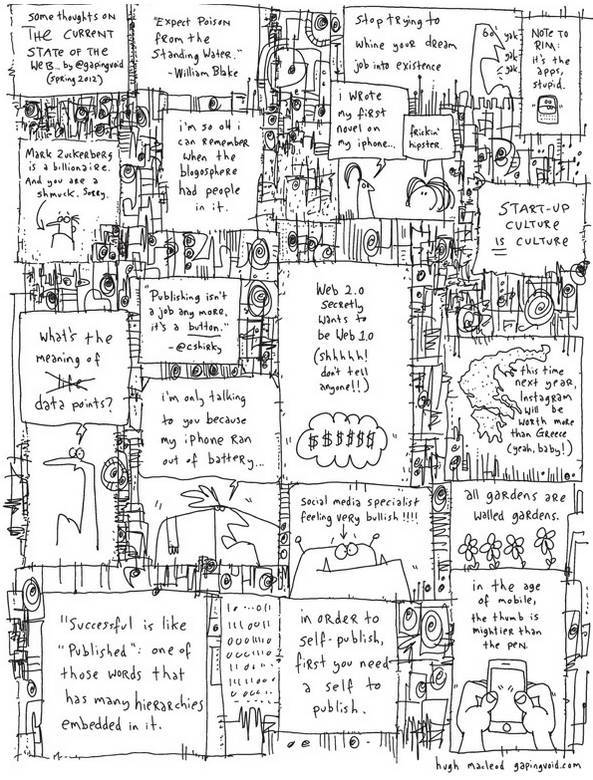 Some thoughts on
THE CURRENT
STATE OF THE
WEB... by @gapingvoid
(Spring 2012)
"Expect Poison
from the
Standing Water."
- William Blake
Stop trying to
whine your dream
job into existence
yak
yak
yak
NOTE TO
RIM:
it's the
apps,
stupid.
Mark Zuckerberg
is a billionaire.
And you are a
shmuck. Sorry.
i'm so old i
can remember
when the
blogosphere
had people
in it.
i wrote
my first
novel on
my iphone...
frickin'
hipster.
START-UP
CULTURE
IS CULTURE
"Publishing isn't
a job any more,
it's a button."
- @cshirky
Web 2.0
Secretly
wants to
be Web 1.0
(shhhhh!
don't tell
anyone!!)
$$$$$$
What's the
meaning of
life
data points?
i'm only talking
to you because
my iPhone ran
out of battery...
this time
next year,
Instagram
will be
worth more
than Greece
(yeah, baby!)
social media specialist
feeling very bullish !!!!
all gardens are
walled gardens.
"Successful is like
"Published": one of
those words that
has many hierarchies
embedded in it.
in order to
self-publish,
first you need
a self to
publish.
in the age
of mobile,
the thumb is
mightier than
the pen.
hugh macleod gapingvoid.com